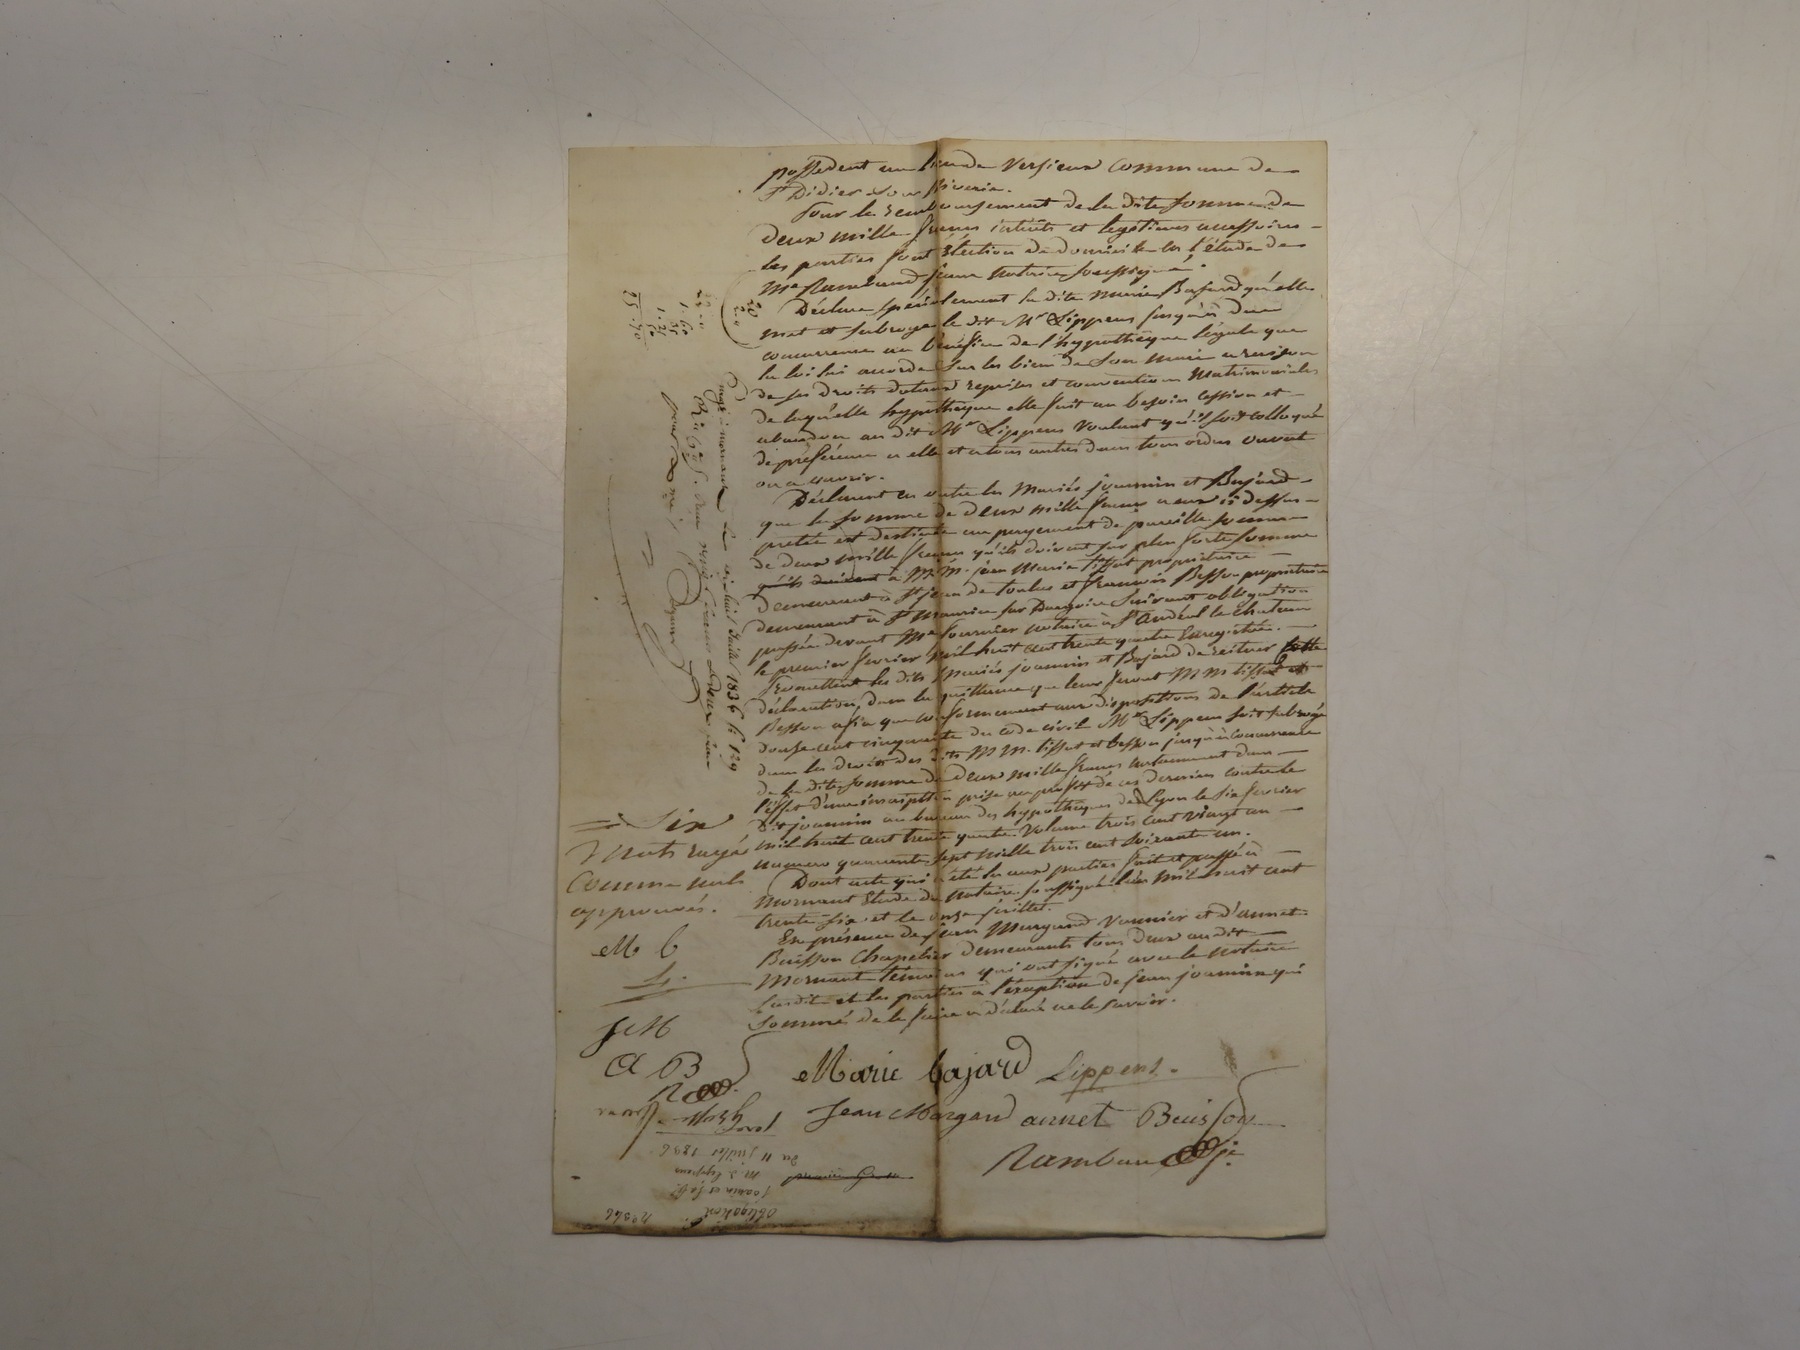 possèdent au lieu de Versieux commune de
St Didier sous Riverie.
Pour le remboursement de la dite somme de
deux mille francs intérêts et légitimes accessoires
les parties font élection de domicile en l'étude de
Me Rambaud jeune notaire soussigné.
Déclare spécialement la dite Marie Bajard qu'elle
met et subroge le dit Mr Lippens jusqu'à due
concurrence au bénéfice de l'hypothèque légale que
la loi lui accorde sur les biens de son mari a raison
de ses droits dotaux reprises et conventions matrimoniales
de laquelle hypothèque elle fait au besoin cession et
abandon au dit Mr Lippens voulant qu'il soit colloqué
de préférence a elle et a tous autres dans tous ordres ouvert
ou a ouvrir.
Déclarent en outre les mariés joannin et Bajard
que la somme de deux mille francs a eux ci dessus
pretée est destinée au payement de pareille somme
de deux mille francs qu'ils doivent sur plus forte somme
qu'ils doivent à M.M. jean Marie tissot propriétaire
demeurant à St jean de toulas et francois Besson propriétaire
demeurant à St Maurice sur Dargoire suivant obligation
passée devant Me fournier notaire à St Andéol le chateau
le premier fevrier mil huit cent trente quatre Enregistrée.
Promettent les dits mariés joannin et Bajard de réitérer cette
déclaration dans la quittance que leur feront MM tissot et
Besson afin que conformément aux dispositions de l'article
douze cent cinquante du code civil Mr Lippens soit subrogé
dans les droits des dits MM. tissot et besson jusqu'à concurrence
de la dite somme de deux mille francs notamment dans
l'effet d'une inscription prise au profit de ces derniers contre le
dit joannin au bureau des hypothèques de Lyon le six fevrier
mil huit cent trente quatre. Volume trois cent vingt un
numero quarante sept mille trois cent soixante un.
Dont acte qui a été lu aux parties fait et passé à
Mornant Etude du notaire soussigné l'an mil huit cent
trente six et le onze juillet.
En présence de jean Margand vannier et d'annet
Buisson Chapelier demeurants tous deux au dit
Mornant témoins qui ont signé avec le notaire
susdit et les parties à l'exception de jean joannin qui
sommé de le faire a déclaré ne le savoir.
Marie bajard Lippens.
Jean Margand annet Buisson
Rambaud je
Six
mots rayés
comme nuls
approuvés.
M b
L.
J M
A B
R
20
2-0
1. 60
35
1. 21
60
25-70
Enregé à mornant le dix huit juillet 1836 fo 129
pour
premiere Grosse
No 346
obligation
joannin et fe
Mr Lippens
du 11 juillet 1836